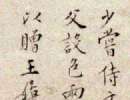 少嘗侍
父設色兩
以贈王